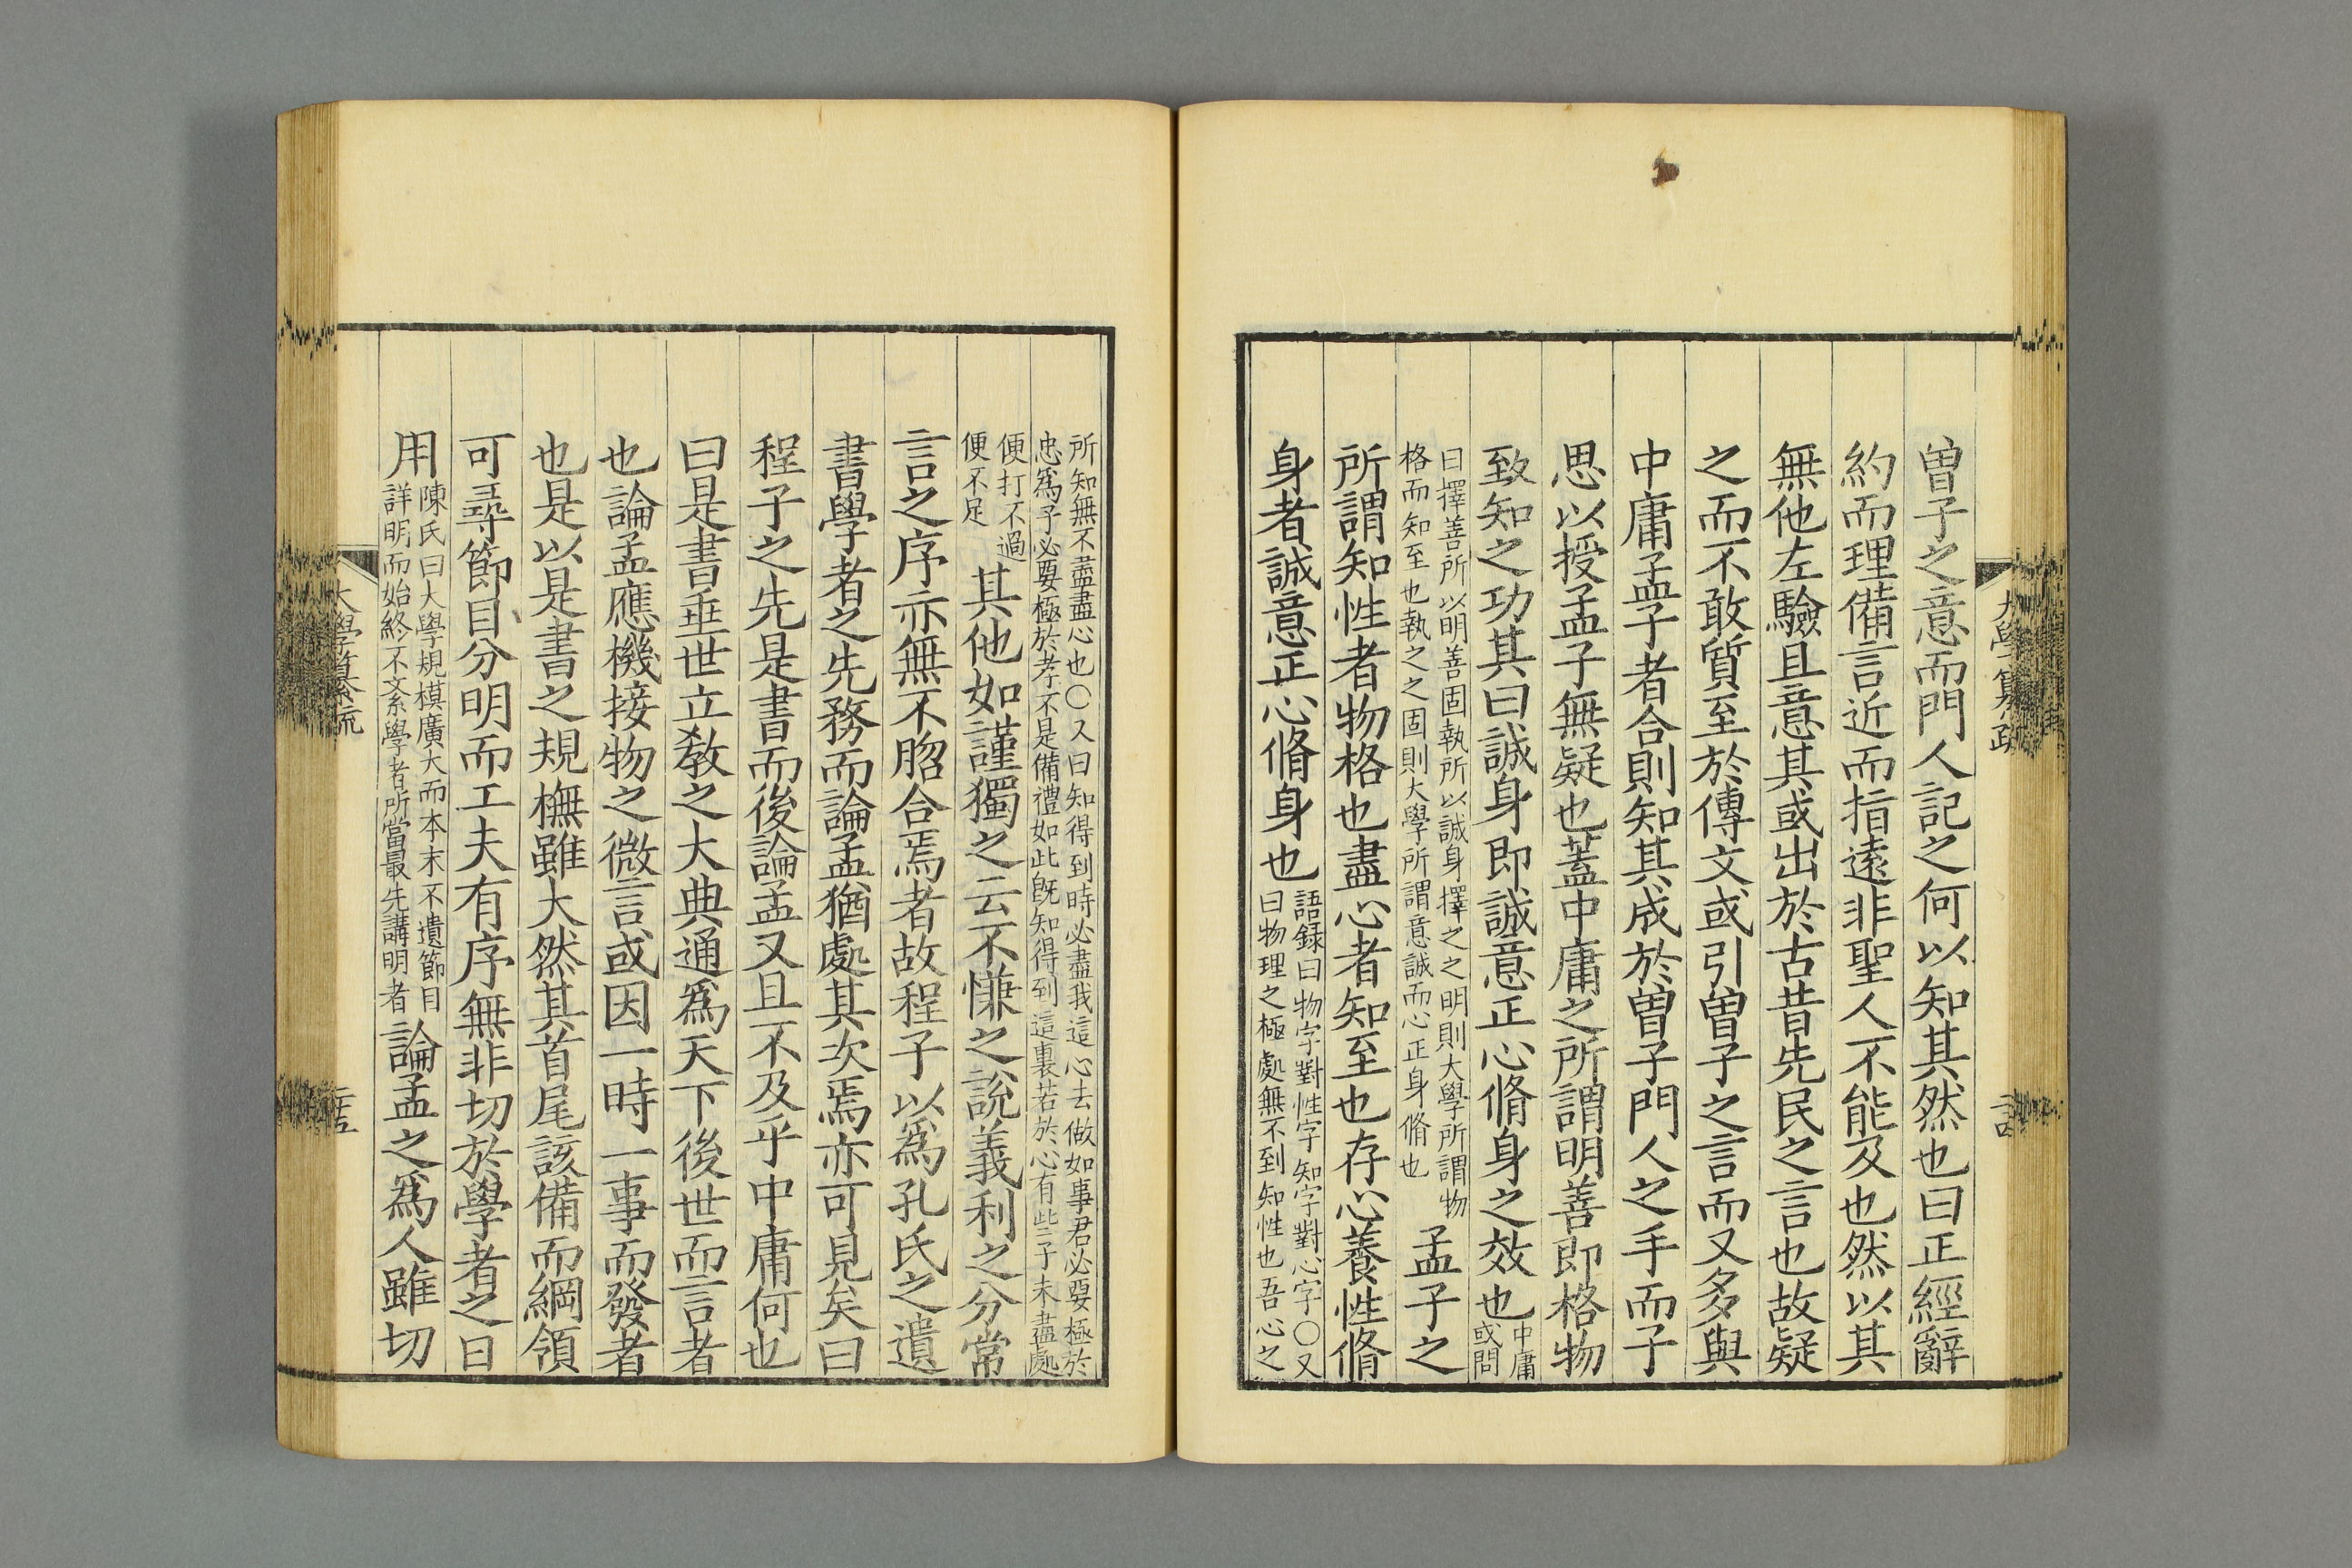 曽子之意而門人記之何以知其然也曰正經辭
約而理備言近而指遠非聖人不能及也然以其
無他左驗且意其或出於古昔先民之言也故疑
之而不敢質至於傳文或引曽子之言而又多與
中庸孟子者合則知其成於曽子門人之手而子
思以授孟子無疑也蓋中庸之所謂明善即格物
致知之功其曰誠身即誠意正心脩身之效也中庸
或問
曰擇善所以明善固執所以誠身擇之之明則大學所謂物
格而知至也執之之固則大學所謂意誠而心正身脩也
孟子之
所謂知性者物格也盡心者知至也存心養性脩
身者誠意正心脩身也語録曰物字對性字知字對心字○又
曰物理之極處無不到知性也吾心之
所知無不盡盡心也○又曰知得到時必盡我這心去做如事君必要極於
忠爲子必要極於孝不是備禮如此旣知得到這裏若於心有些子未盡處
便打不過
便不足
其他如謹獨之云不慊之說義利之分常
言之序亦無不脗合焉者故程子以爲孔氏之遺
書學者之先務而論孟猶處其次焉亦可見矣曰
程子之先是書而後論孟又且不及乎中庸何也
曰是書垂世立敎之大典通爲天下後世而言者
也論孟應機接物之微言或因一時一事而發者
也是以是書之規橅雖大然其首尾該備而綱領
可尋節目分明而工夫有序無非切於學者之日
用陳氏曰大學規模廣大而本末不遺節目
詳明而始終不紊學者所當最先講明者
論孟之爲人雖切